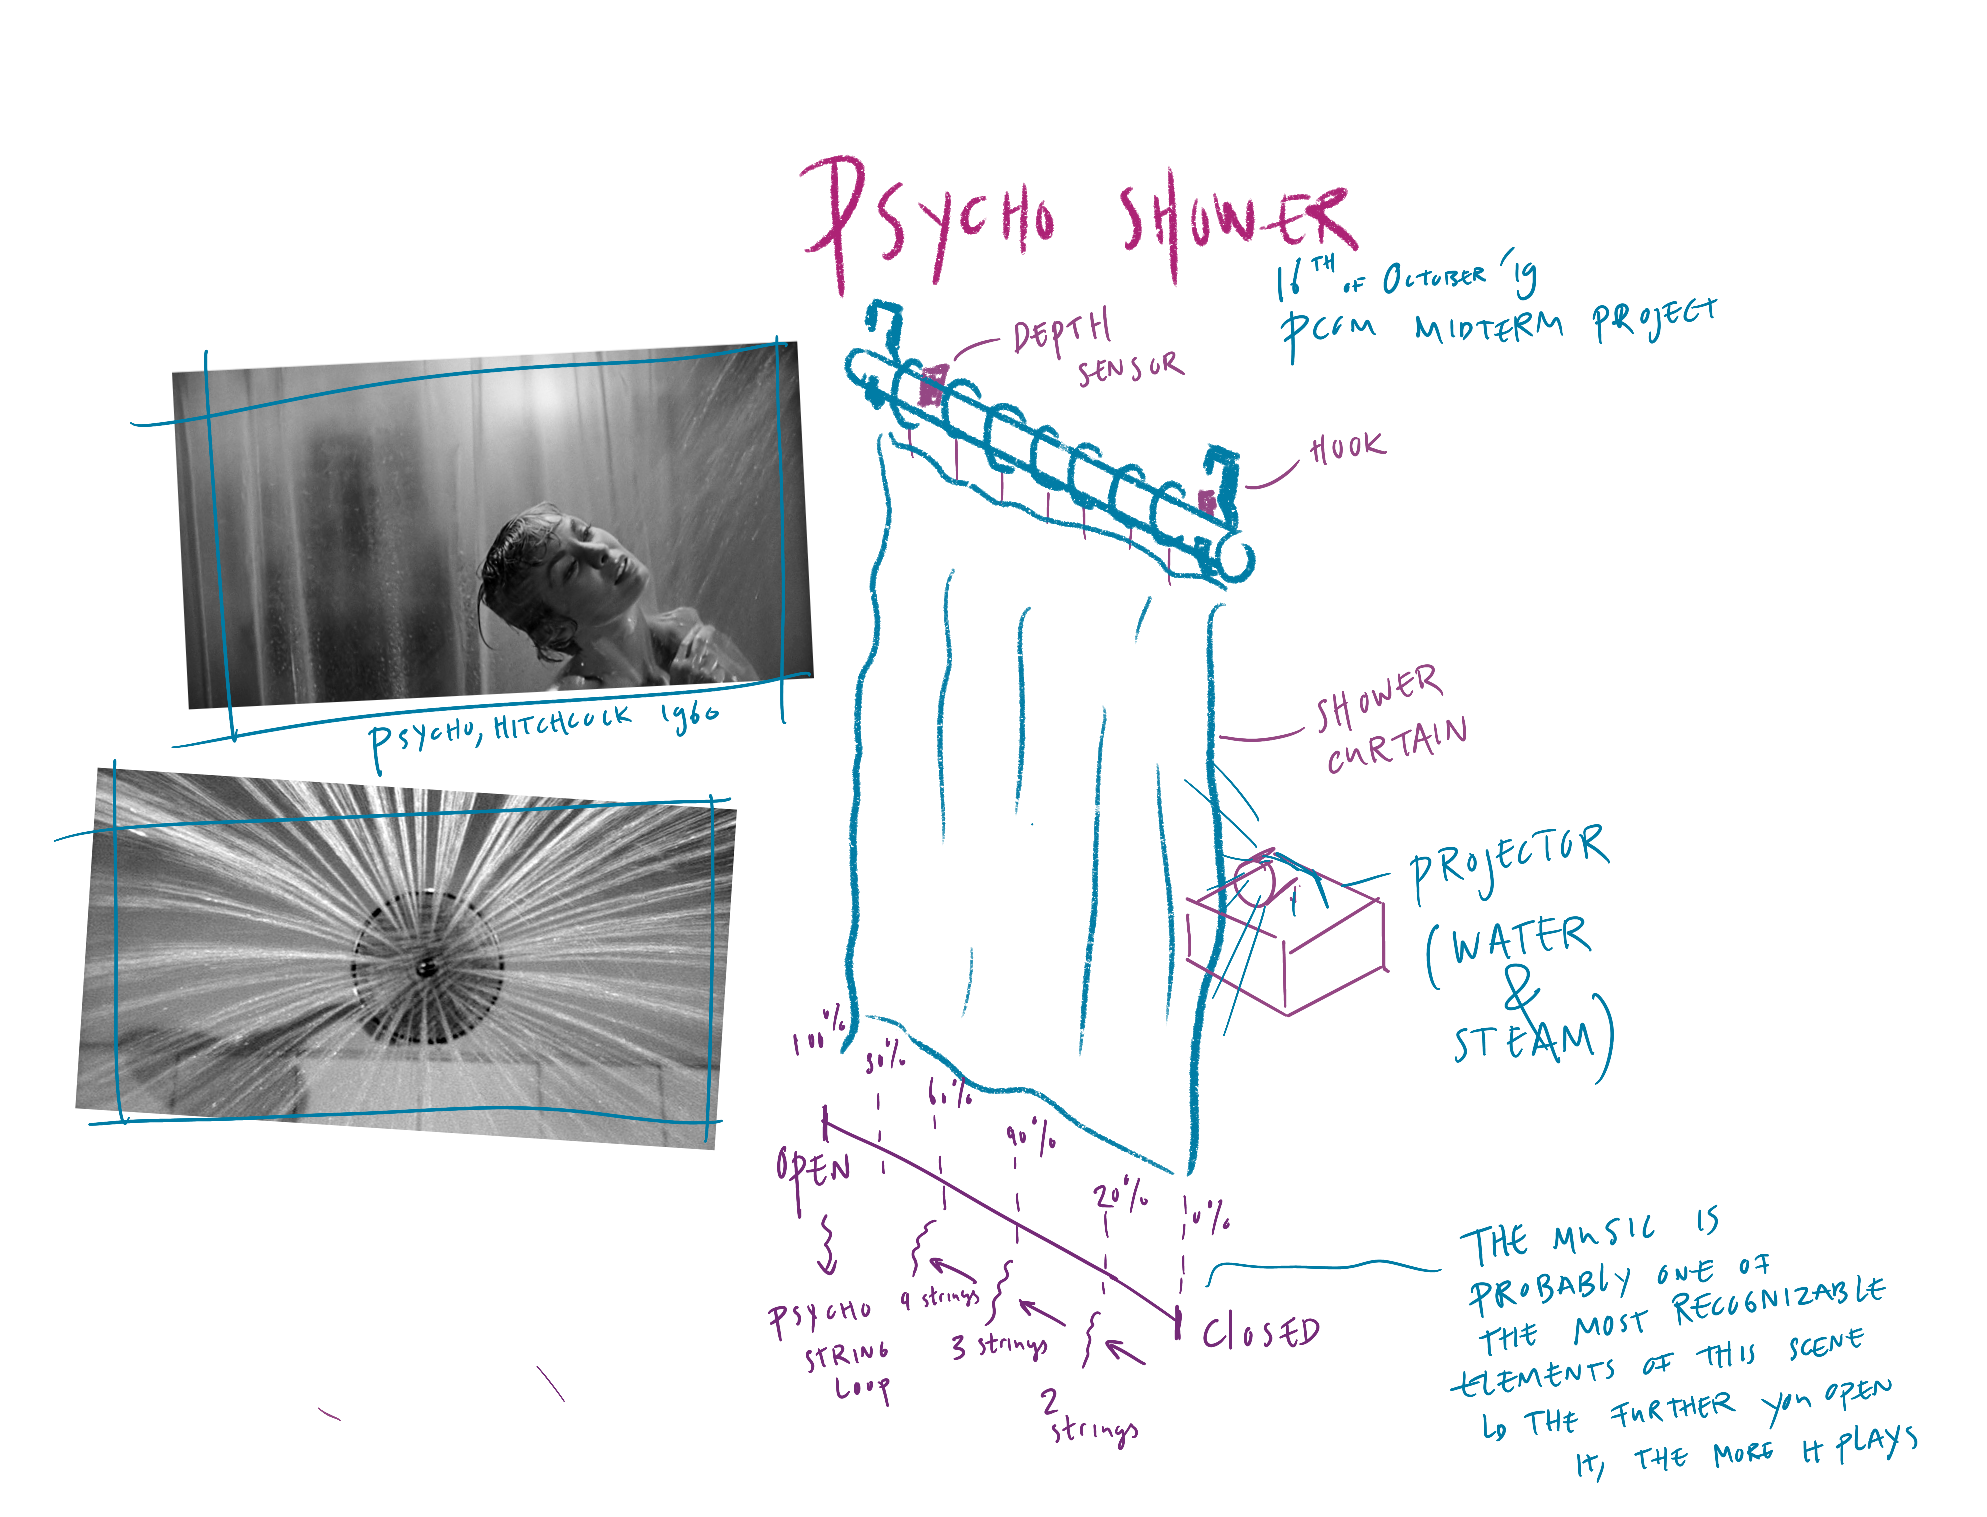 PSYCHO SHOWER
16TH OF OCTOBER '19
PCOM MIDTERM PROJECT
DEPTH
SENSOR
HOOK
PSYCHO, HITCHCOCK 1960
SHOWER
CURTAIN
PROJECTOR
(WATER
&
STEAM)
100%
80%
60%
40%
20%
0%
OPEN
CLOSED
PSYCHO
STRING
LOOP
4 strings
3 strings
2
strings
THE MUSIC IS
PROBABLY ONE OF
THE MOST RECOGNIZABLE
ELEMENTS OF THIS SCENE
↳ THE FURTHER YOU OPEN
IT, THE MORE IT PLAYS